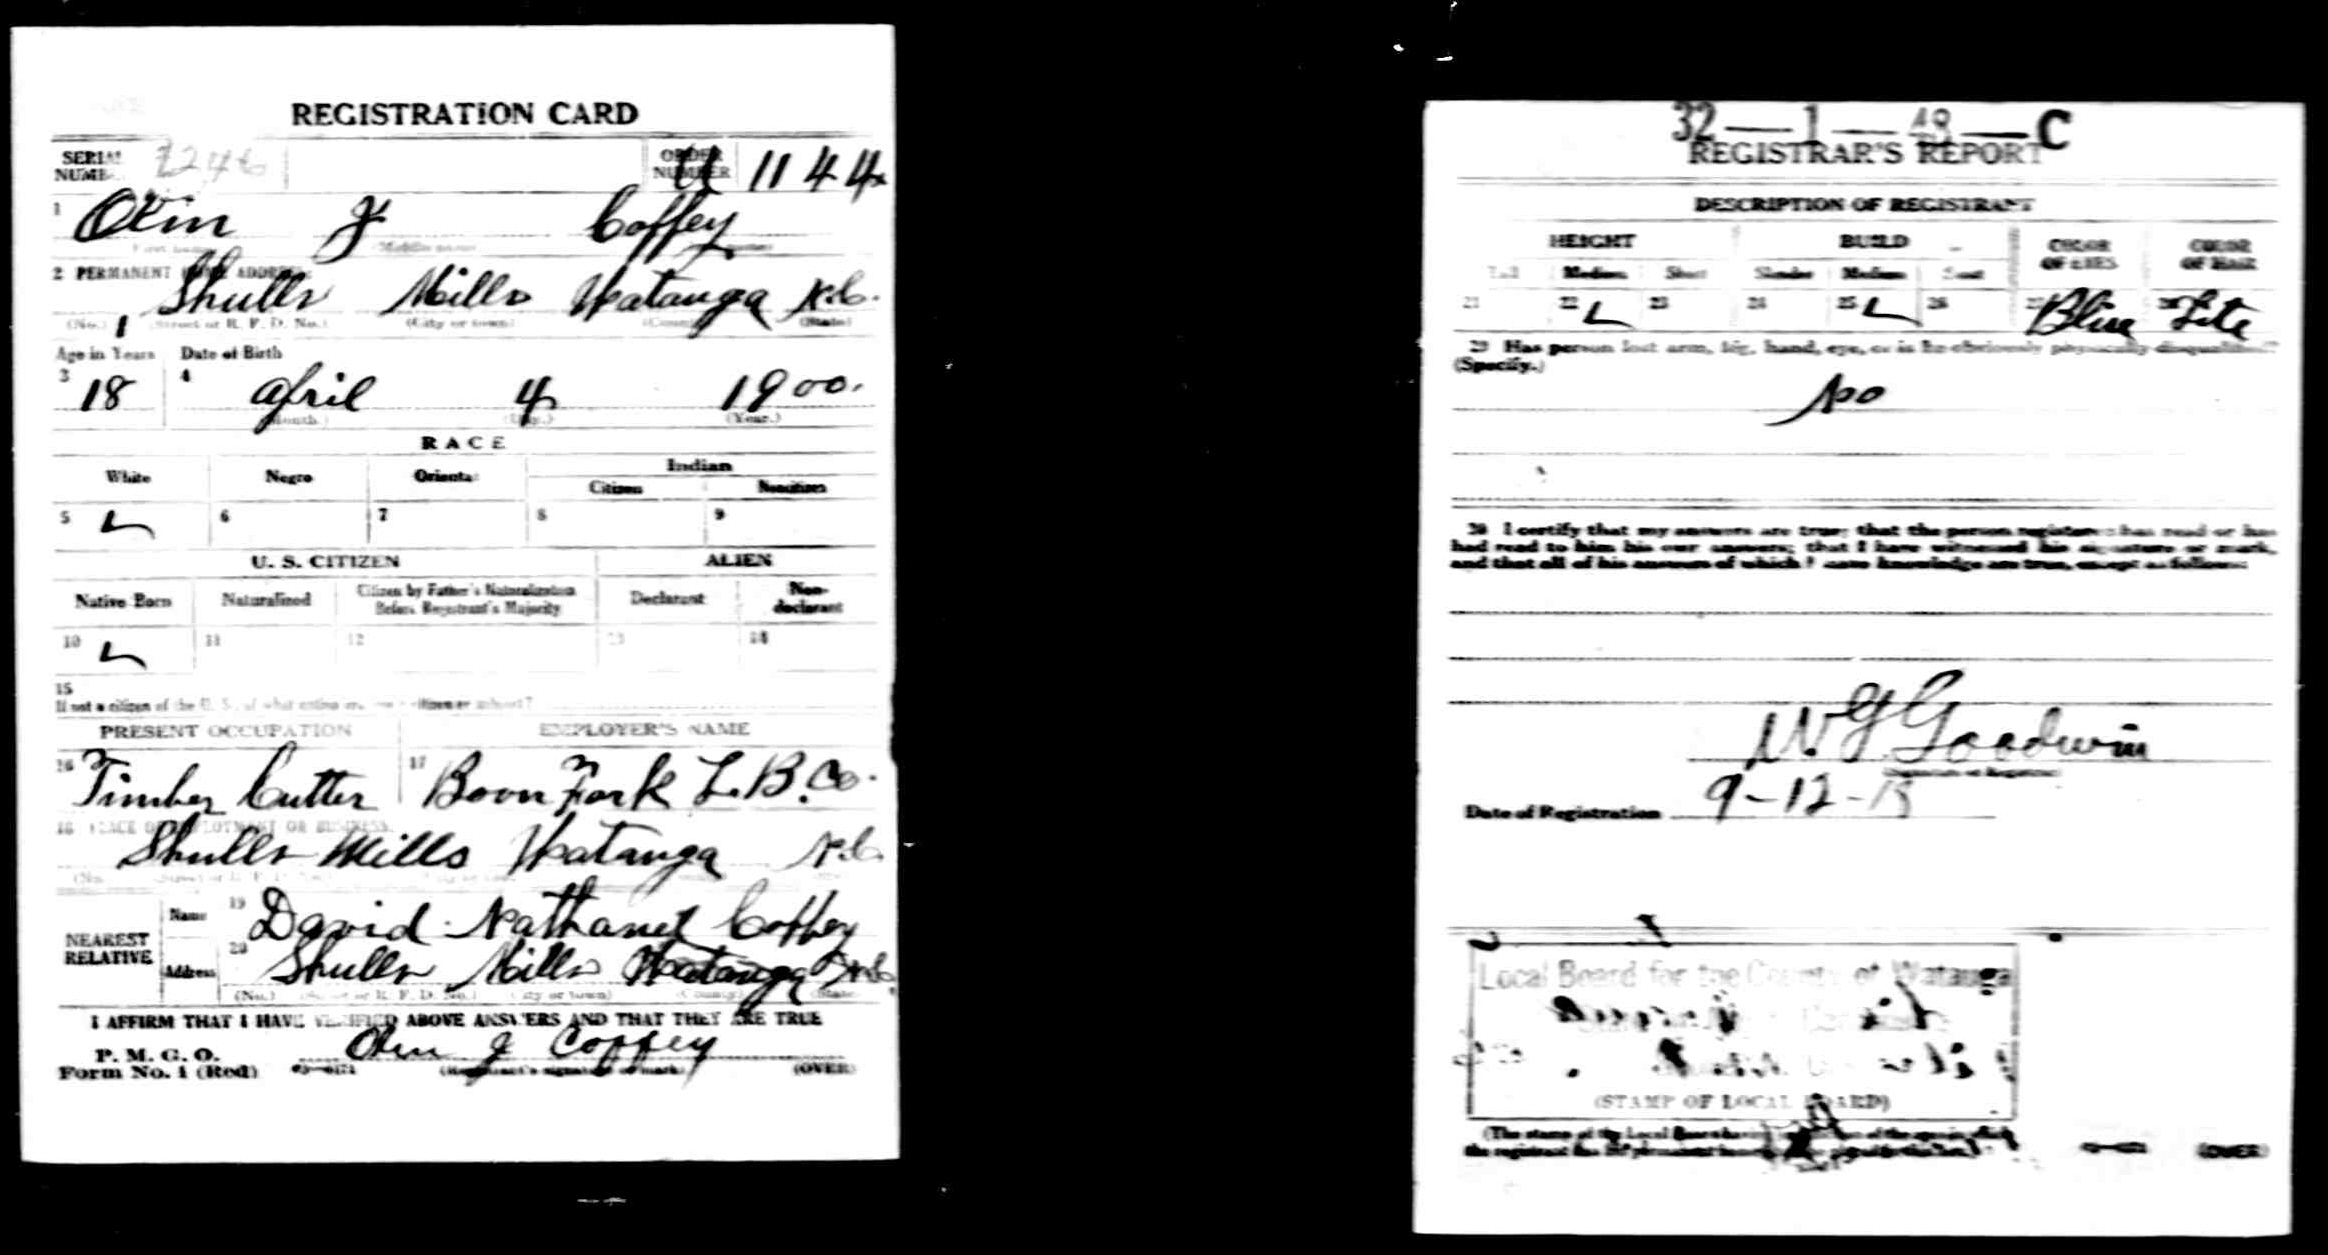 REGISTRATION CARD
SERIAL NUMBER ORDER NUMBER 1144
1 Olin J Coffey
2 PERMANENT HOME ADDRESS:
Shulls Mills Watauga N.C.
(No.) (Street or R. F. D. No.) (City or town) (County) (State)
Age in Years Date of Birth
3 18 4 April 4 1900.
(Month.) (Day.) (Year.)
RACE
White Negro Oriental Indian
Citizen Noncitizen
5 6 7 8 9
U. S. CITIZEN ALIEN
Native Born Naturalized Citizen by Father's Naturalization Before Registrant's Majority Declarant Non-declarant
10 11 12 13 14
15
If not a citizen of the U. S., of what nation are you a citizen or subject?
PRESENT OCCUPATION EMPLOYER'S NAME
16 Timber Cutter 17 Boon Fork L.B. Co.
18 PLACE OF EMPLOYMENT OR BUSINESS:
Shulls Mills Watauga N.C.
NEAREST RELATIVE
Name 19 David Nathanel Coffey
Address 20 Shulls Mills Watauga N.C.
(No.) (Street or R. F. D. No.) (City or town) (County) (State)
I AFFIRM THAT I HAVE VERIFIED ABOVE ANSWERS AND THAT THEY ARE TRUE
P. M. G. O.
Form No. 1 (Red) Olin J Coffey
(Registrant's signature or mark) (OVER)
32—1—49—C
REGISTRAR'S REPORT
DESCRIPTION OF REGISTRANT
HEIGHT BUILD COLOR OF EYES COLOR OF HAIR
Tall Medium Short Slender Medium Stout
21 22 23 24 25 26 27 Blue 28 Lite
29 Has person lost arm, leg, hand, eye, or is he obviously physically disqualified?
(Specify.)
No
30 I certify that my answers are true; that the person registered has read or has
had read to him his own answers; that I have witnessed his signature or mark,
and that all of his answers of which I have knowledge are true, except as follows:
W G Goodwin
(Signature of Registrar)
Date of Registration 9-12-18
Local Board for the County of Watauga
(STAMP OF LOCAL BOARD)
(OVER)